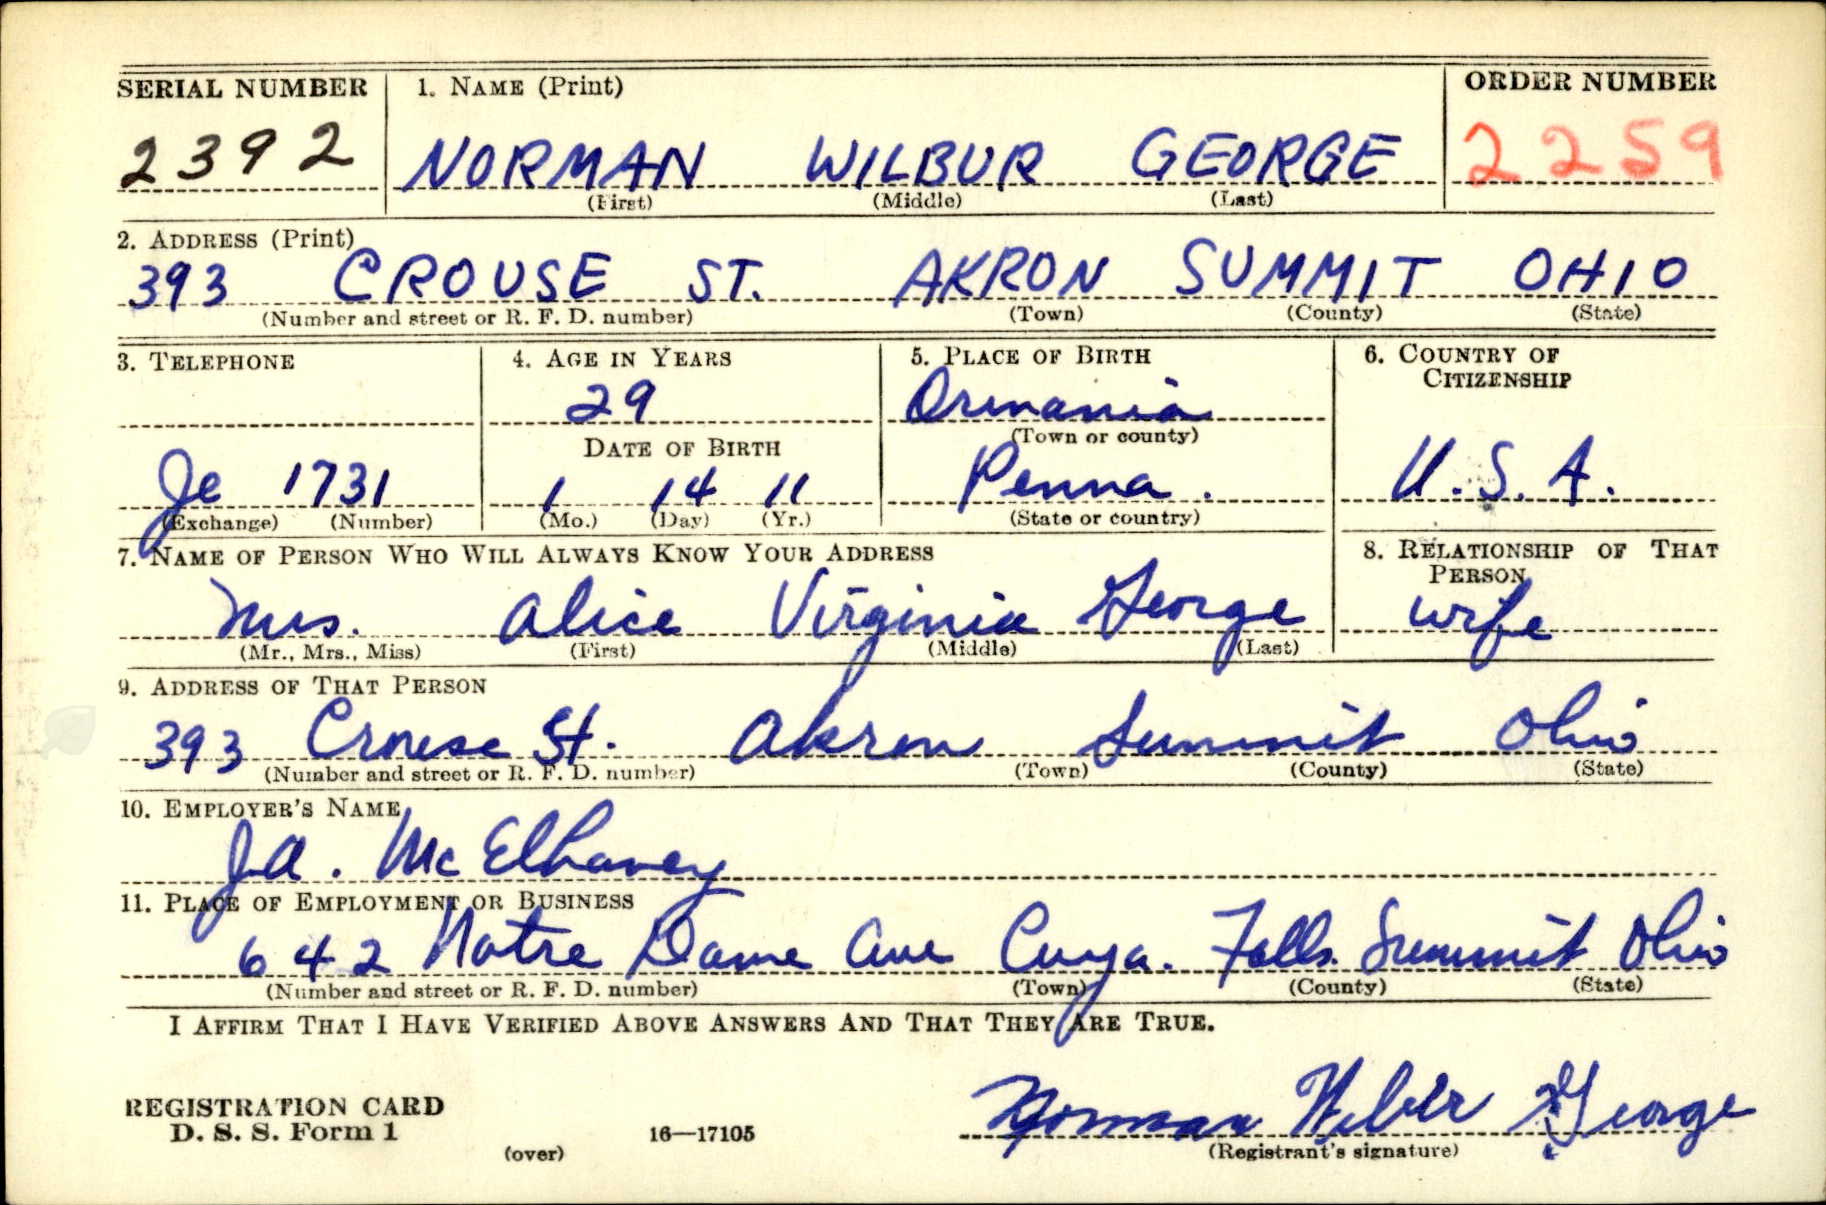 SERIAL NUMBER 1. NAME (Print) ORDER NUMBER
2392 NORMAN WILBUR GEORGE 2259
(First) (Middle) (Last)
2. ADDRESS (Print)
393 CROUSE ST. AKRON SUMMIT OHIO
(Number and street or R. F. D. number) (Town) (County) (State)
3. TELEPHONE 4. AGE IN YEARS 5. PLACE OF BIRTH 6. COUNTRY OF CITIZENSHIP
29 Ormania
DATE OF BIRTH (Town or county)
Je 1731 1 14 11 Penna. U.S.A.
(Exchange) (Number) (Mo.) (Day) (Yr.) (State or country)
7. NAME OF PERSON WHO WILL ALWAYS KNOW YOUR ADDRESS 8. RELATIONSHIP OF THAT PERSON
Mrs. Alice Virginia George wife
(Mr., Mrs., Miss) (First) (Middle) (Last)
9. ADDRESS OF THAT PERSON
393 Crouse St. Akron Summit Ohio
(Number and street or R. F. D. number) (Town) (County) (State)
10. EMPLOYER'S NAME
J.A. McElhaney
11. PLACE OF EMPLOYMENT OR BUSINESS
642 Notre Dame Ave Cuya. Falls. Summit Ohio
(Number and street or R. F. D. number) (Town) (County) (State)
I AFFIRM THAT I HAVE VERIFIED ABOVE ANSWERS AND THAT THEY ARE TRUE.
REGISTRATION CARD
D. S. S. Form 1 Norman Wilbur George
(over) 16—17105 (Registrant's signature)